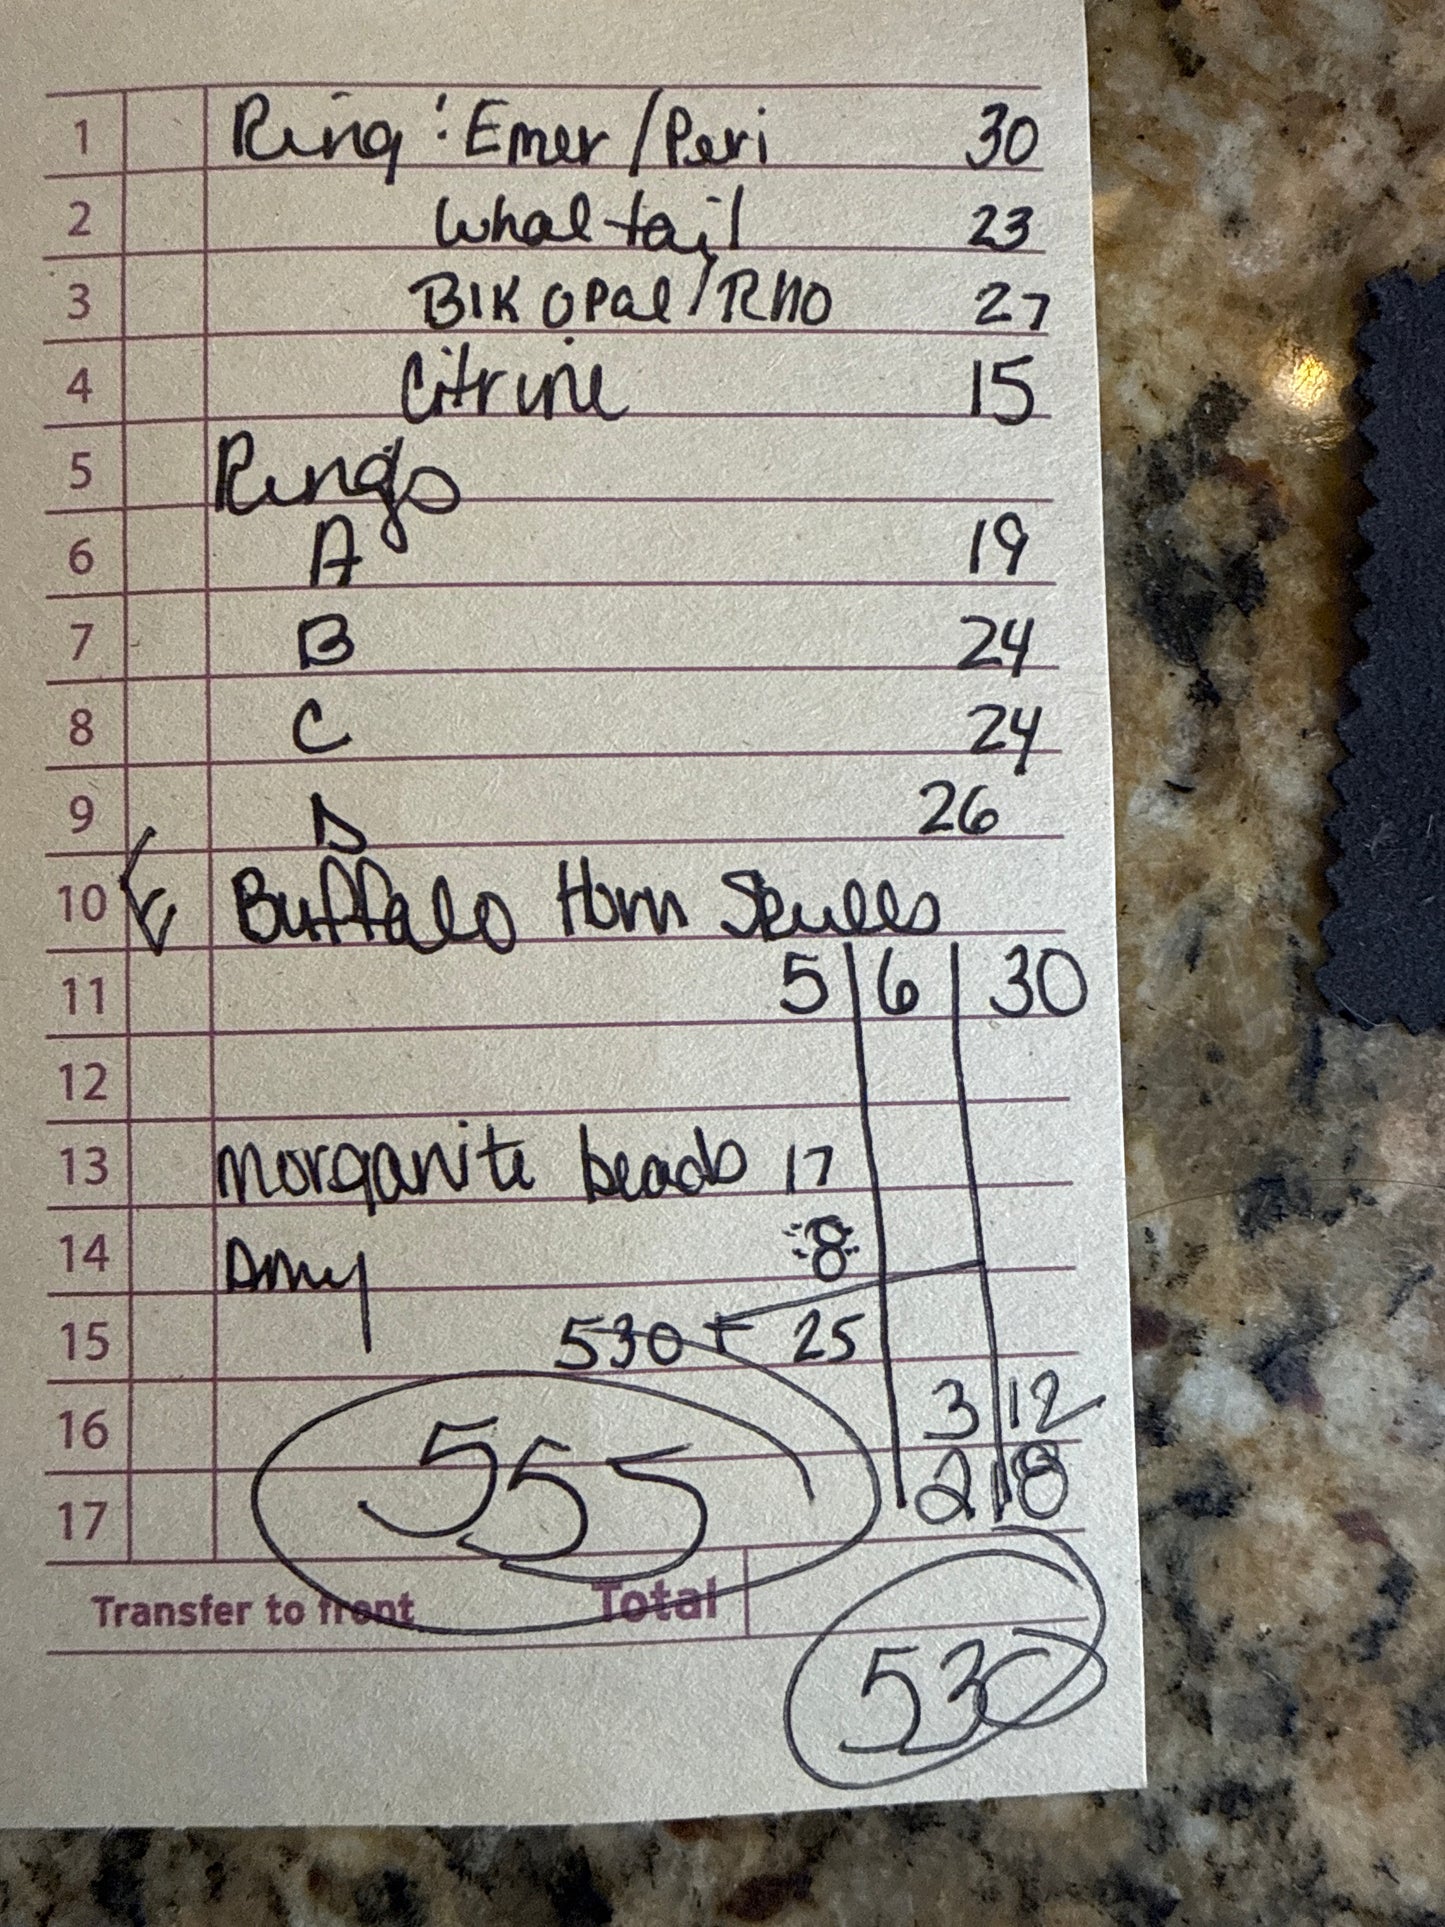 1 Ring: Emer/Peri 30
2 Whal tail 23
3 Blk opal/RHO 27
4 Citrine 15
5 Rings
6 A 19
7 B 24
8 C 24
9 D 26
10 Buffalo Horn Skulls
11 5 6 30
12
13 Morganite beads 17
14 Amy 8
15 530 25
16 3 12
17 555 2 18
Transfer to front Total
530